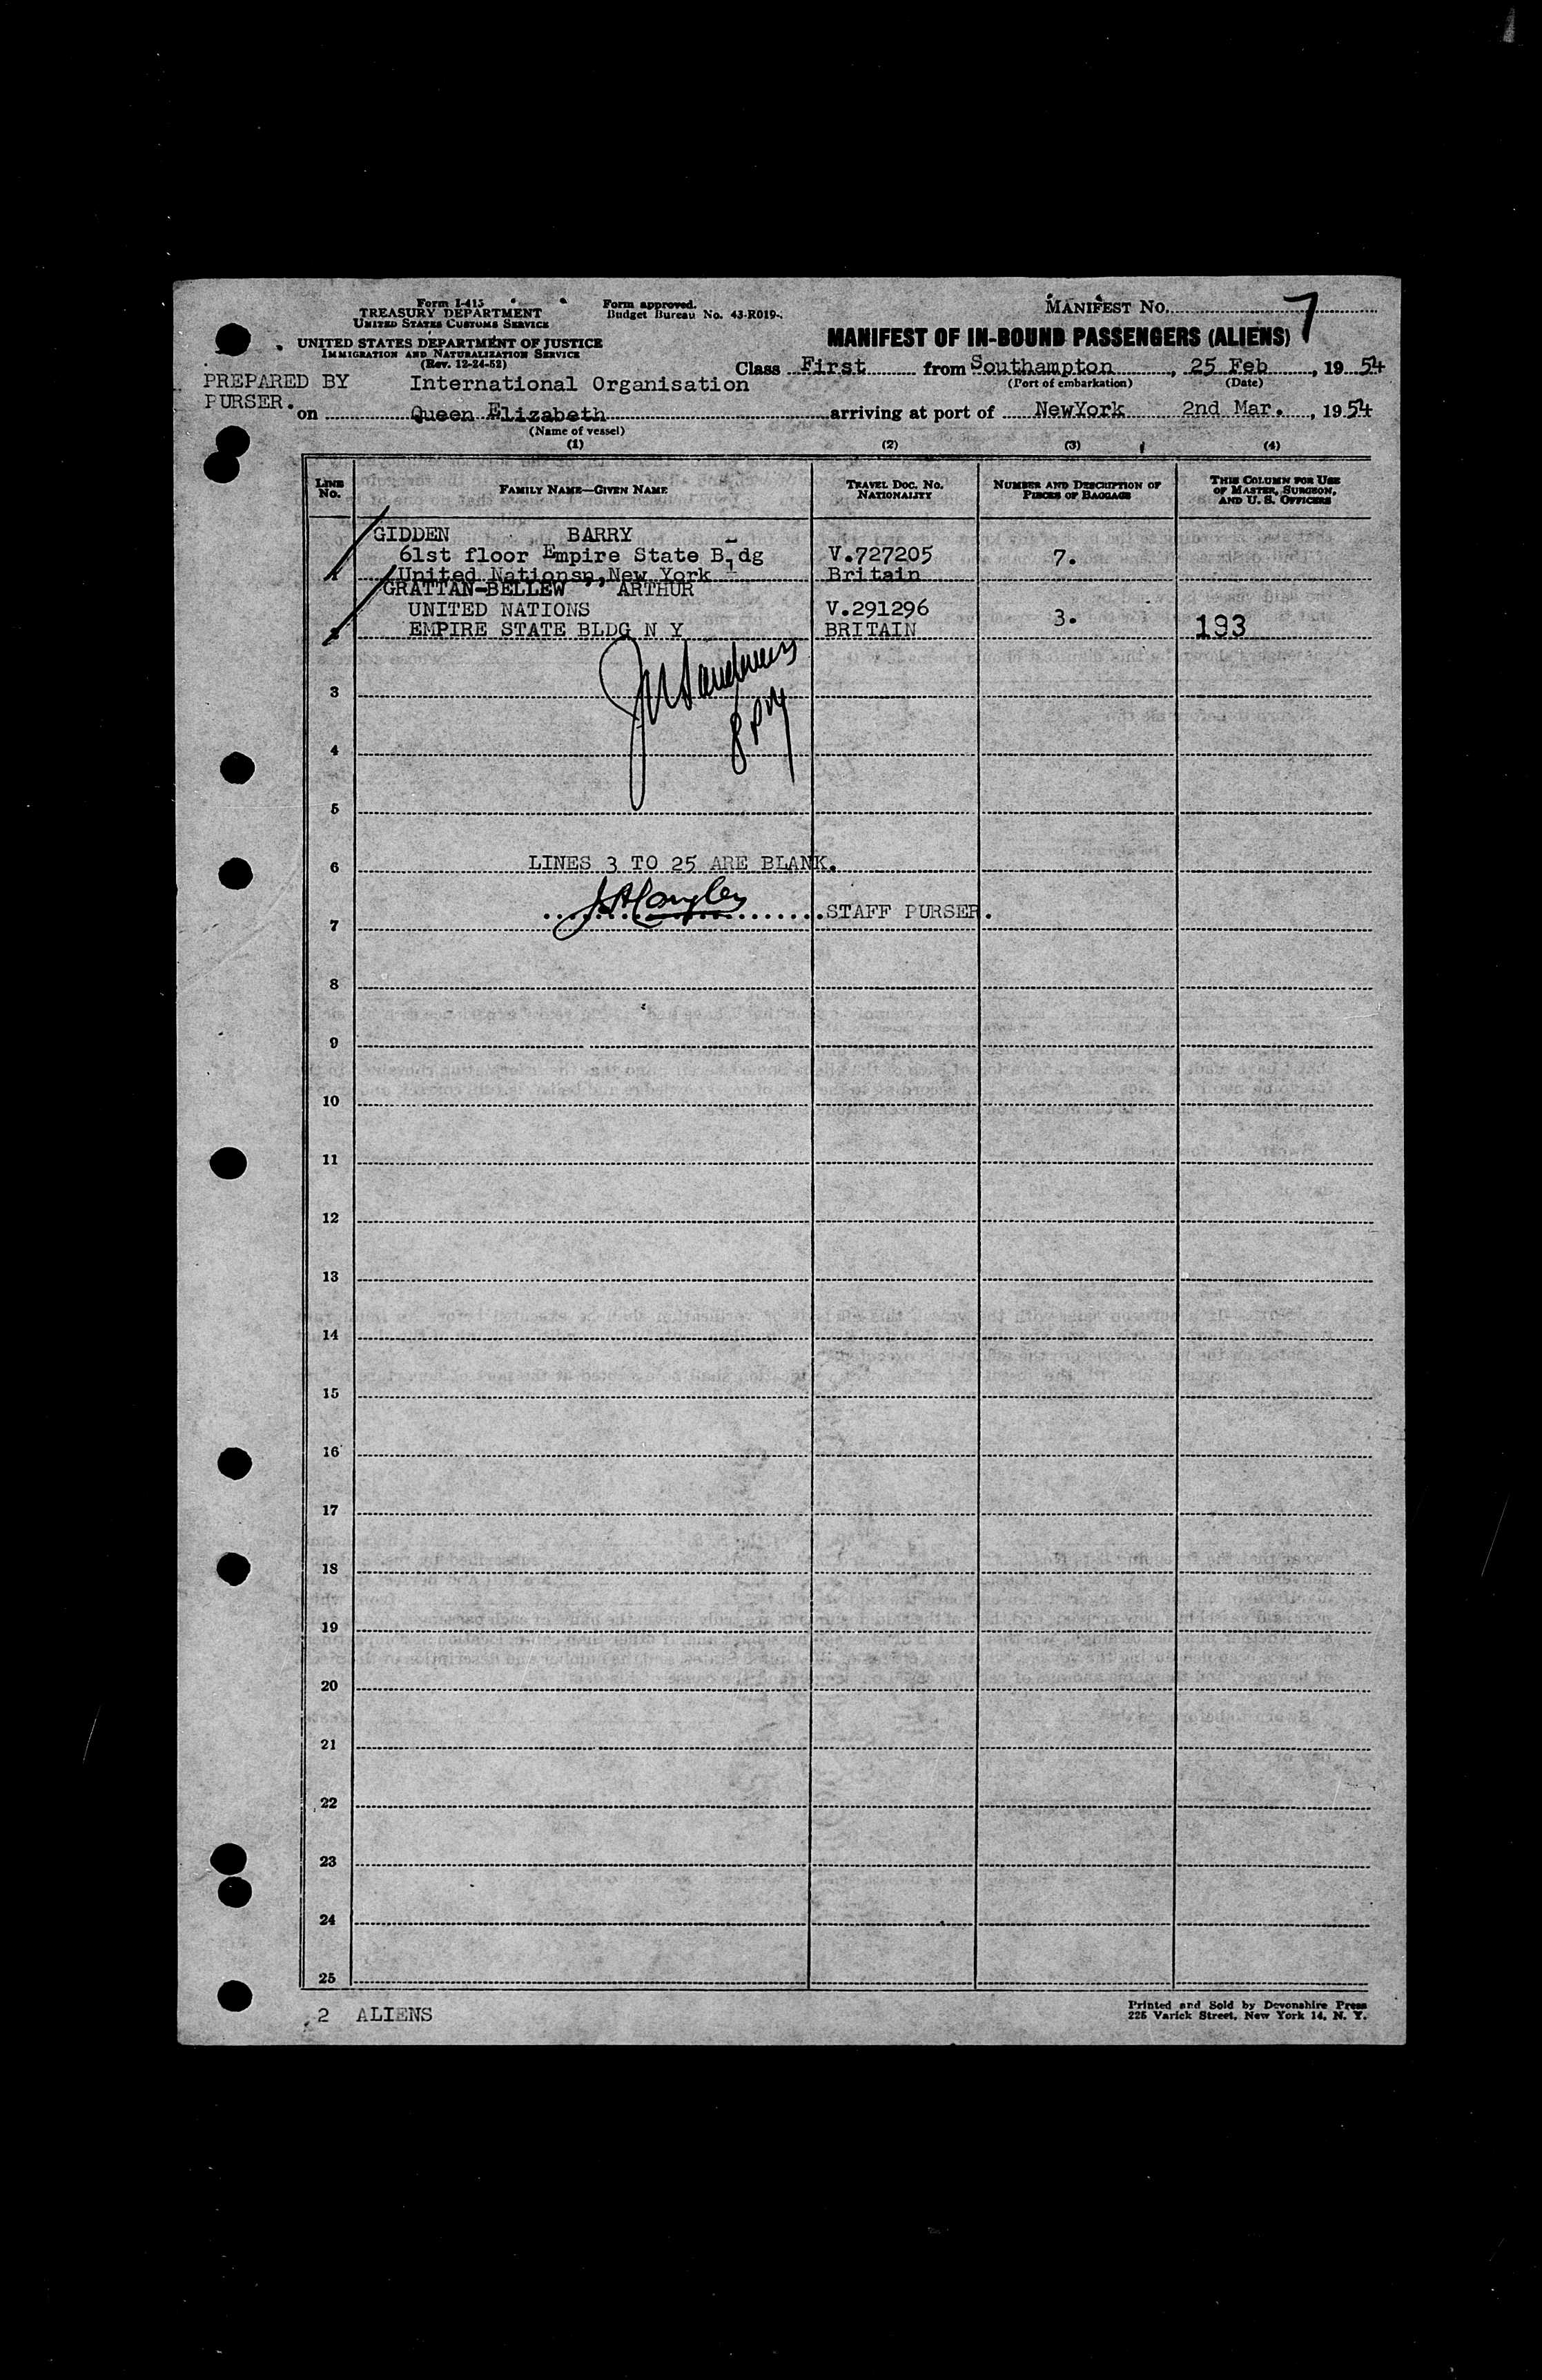 Form I-415
TREASURY DEPARTMENT
UNITED STATES CUSTOMS SERVICE
UNITED STATES DEPARTMENT OF JUSTICE
IMMIGRATION AND NATURALIZATION SERVICE
(Rev. 12-24-52)
Form approved.
Budget Bureau No. 43-R019-.
MANIFEST No. 7
MANIFEST OF IN-BOUND PASSENGERS (ALIENS)
Class First from Southampton, 25 Feb, 1954
(Port of embarkation) (Date)
PREPARED BY International Organisation
PURSER.
on Queen Elizabeth arriving at port of NewYork 2nd Mar., 1954
(Name of vessel)
(1) (2) (3) (4)
LINE No. FAMILY NAME—GIVEN NAME TRAVEL DOC. NO. NATIONALITY NUMBER AND DESCRIPTION OF PIECES OF BAGGAGE THIS COLUMN FOR USE OF MASTER, SURGEON, AND U. S. OFFICERS
GIDDEN BARRY
61st floor Empire State B,dg V.727205 7.
United Nations,,New York Britain
GRATTAN-BELLEW ARTHUR
UNITED NATIONS V.291296 3.
2 EMPIRE STATE BLDG N Y BRITAIN 193
3
8 PM
4
5
6 LINES 3 TO 25 ARE BLANK.
STAFF PURSER.
7
8
9
10
11
12
13
14
15
16
17
18
19
20
21
22
23
24
25
2 ALIENS
Printed and Sold by Devonshire Press
225 Varick Street, New York 14, N. Y.